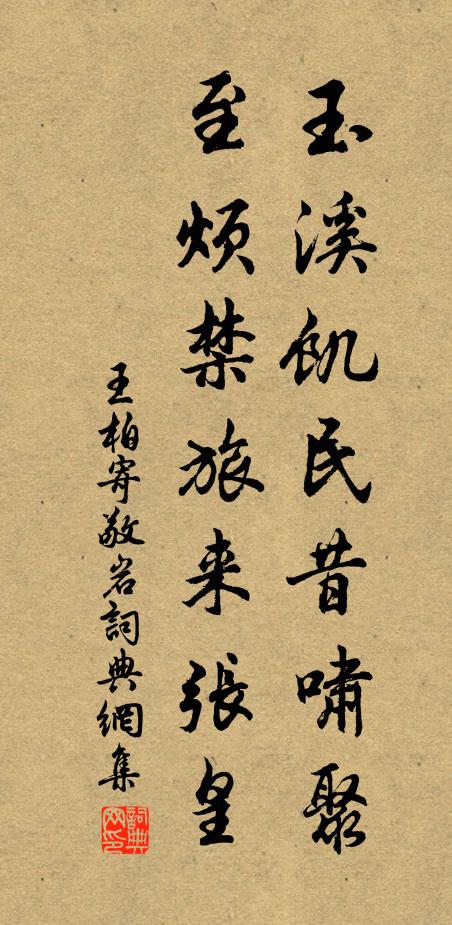 玉溪飢民昔嘯聚
至煩禁旅来張皇
王柏寄敬岩詞典網集
詞典网印